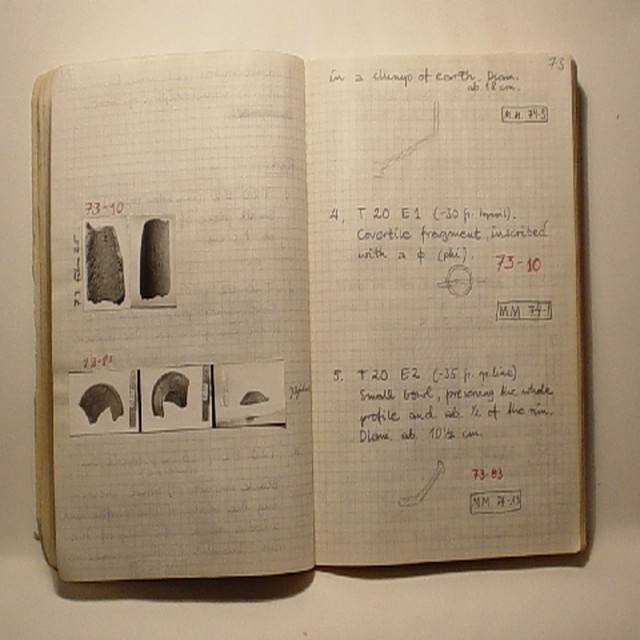 73-10
73-83
73
in a clump of earth. Diam.
ab. 18 cm.
MM. 74-3
4, T 20 E1 (-30 fr.
Covertile fragment, inscribed
with a φ (phi).
73-10
MM 74-1
5. T 20 E2 (-35 fr.
Small bowl, preserving the whole
profile and ab. ½ of the rim.
Diam. ab. 10½ cm.
73-83